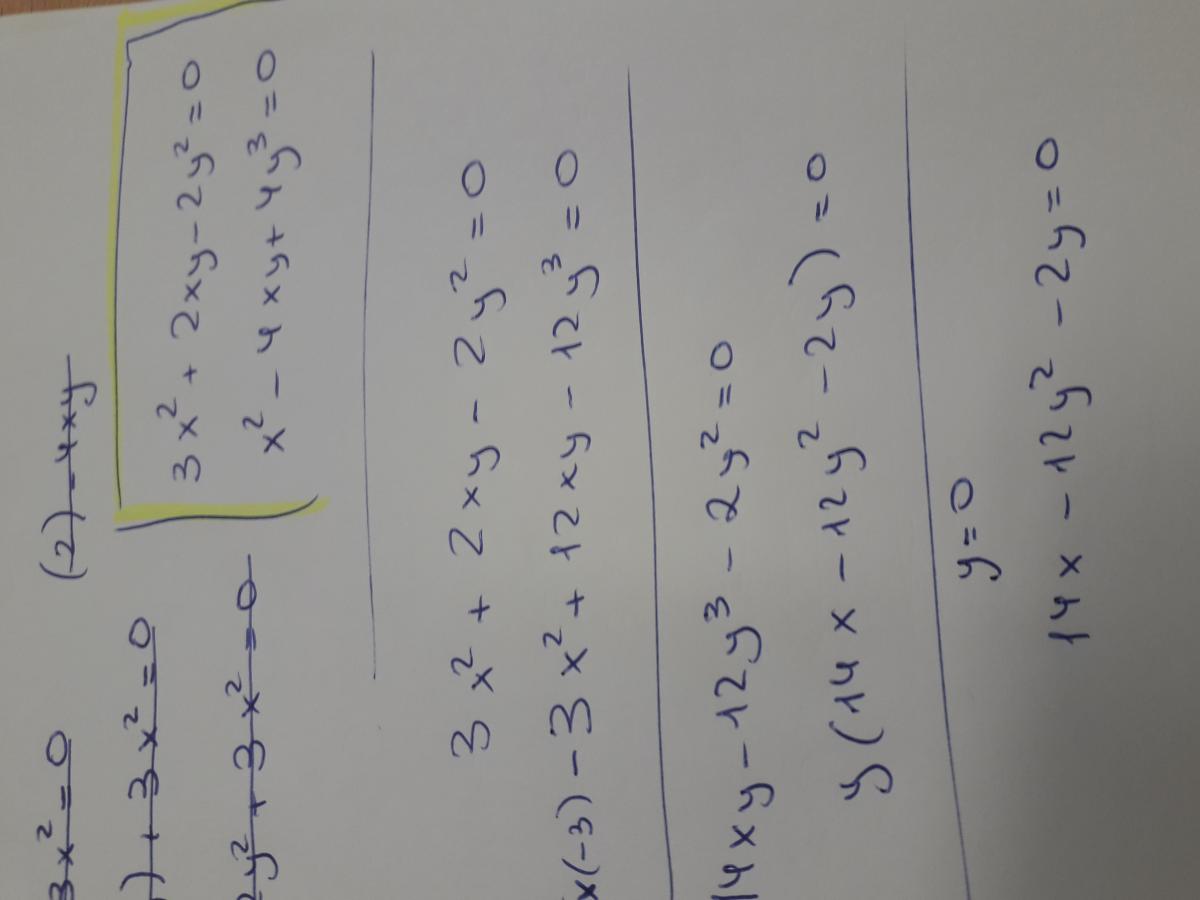 (2) - 4xy
3x² = 0
) + 3x² = 0
2y² + 3x² = 0
3x² + 2xy - 2y² = 0
x² - 4xy + 4y³ = 0
3x² + 2xy - 2y² = 0
x(-3) - 3x² + 12xy - 12y³ = 0
14xy - 12y³ - 2y² = 0
y(14x - 12y² - 2y) = 0
y = 0
14x - 12y² - 2y = 0